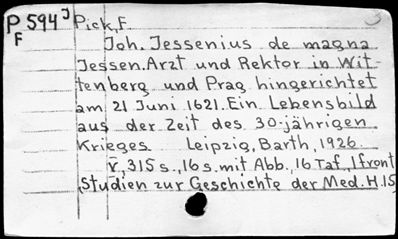 P 594 J Pick, F.
F
Joh. Jessenius de magna
Jessen. Arzt und Rektor in Wit-
tenberg und Prag hingerichtet
am 21 Juni 1621. Ein Lebensbild
aus der Zeit des 30-jährigen
Krieges Leipzig, Barth, 1926.
V, 315 s., 16 s. mit Abb., 16 Taf., 1 front
(Studien zur Geschichte der Med. H. 15)